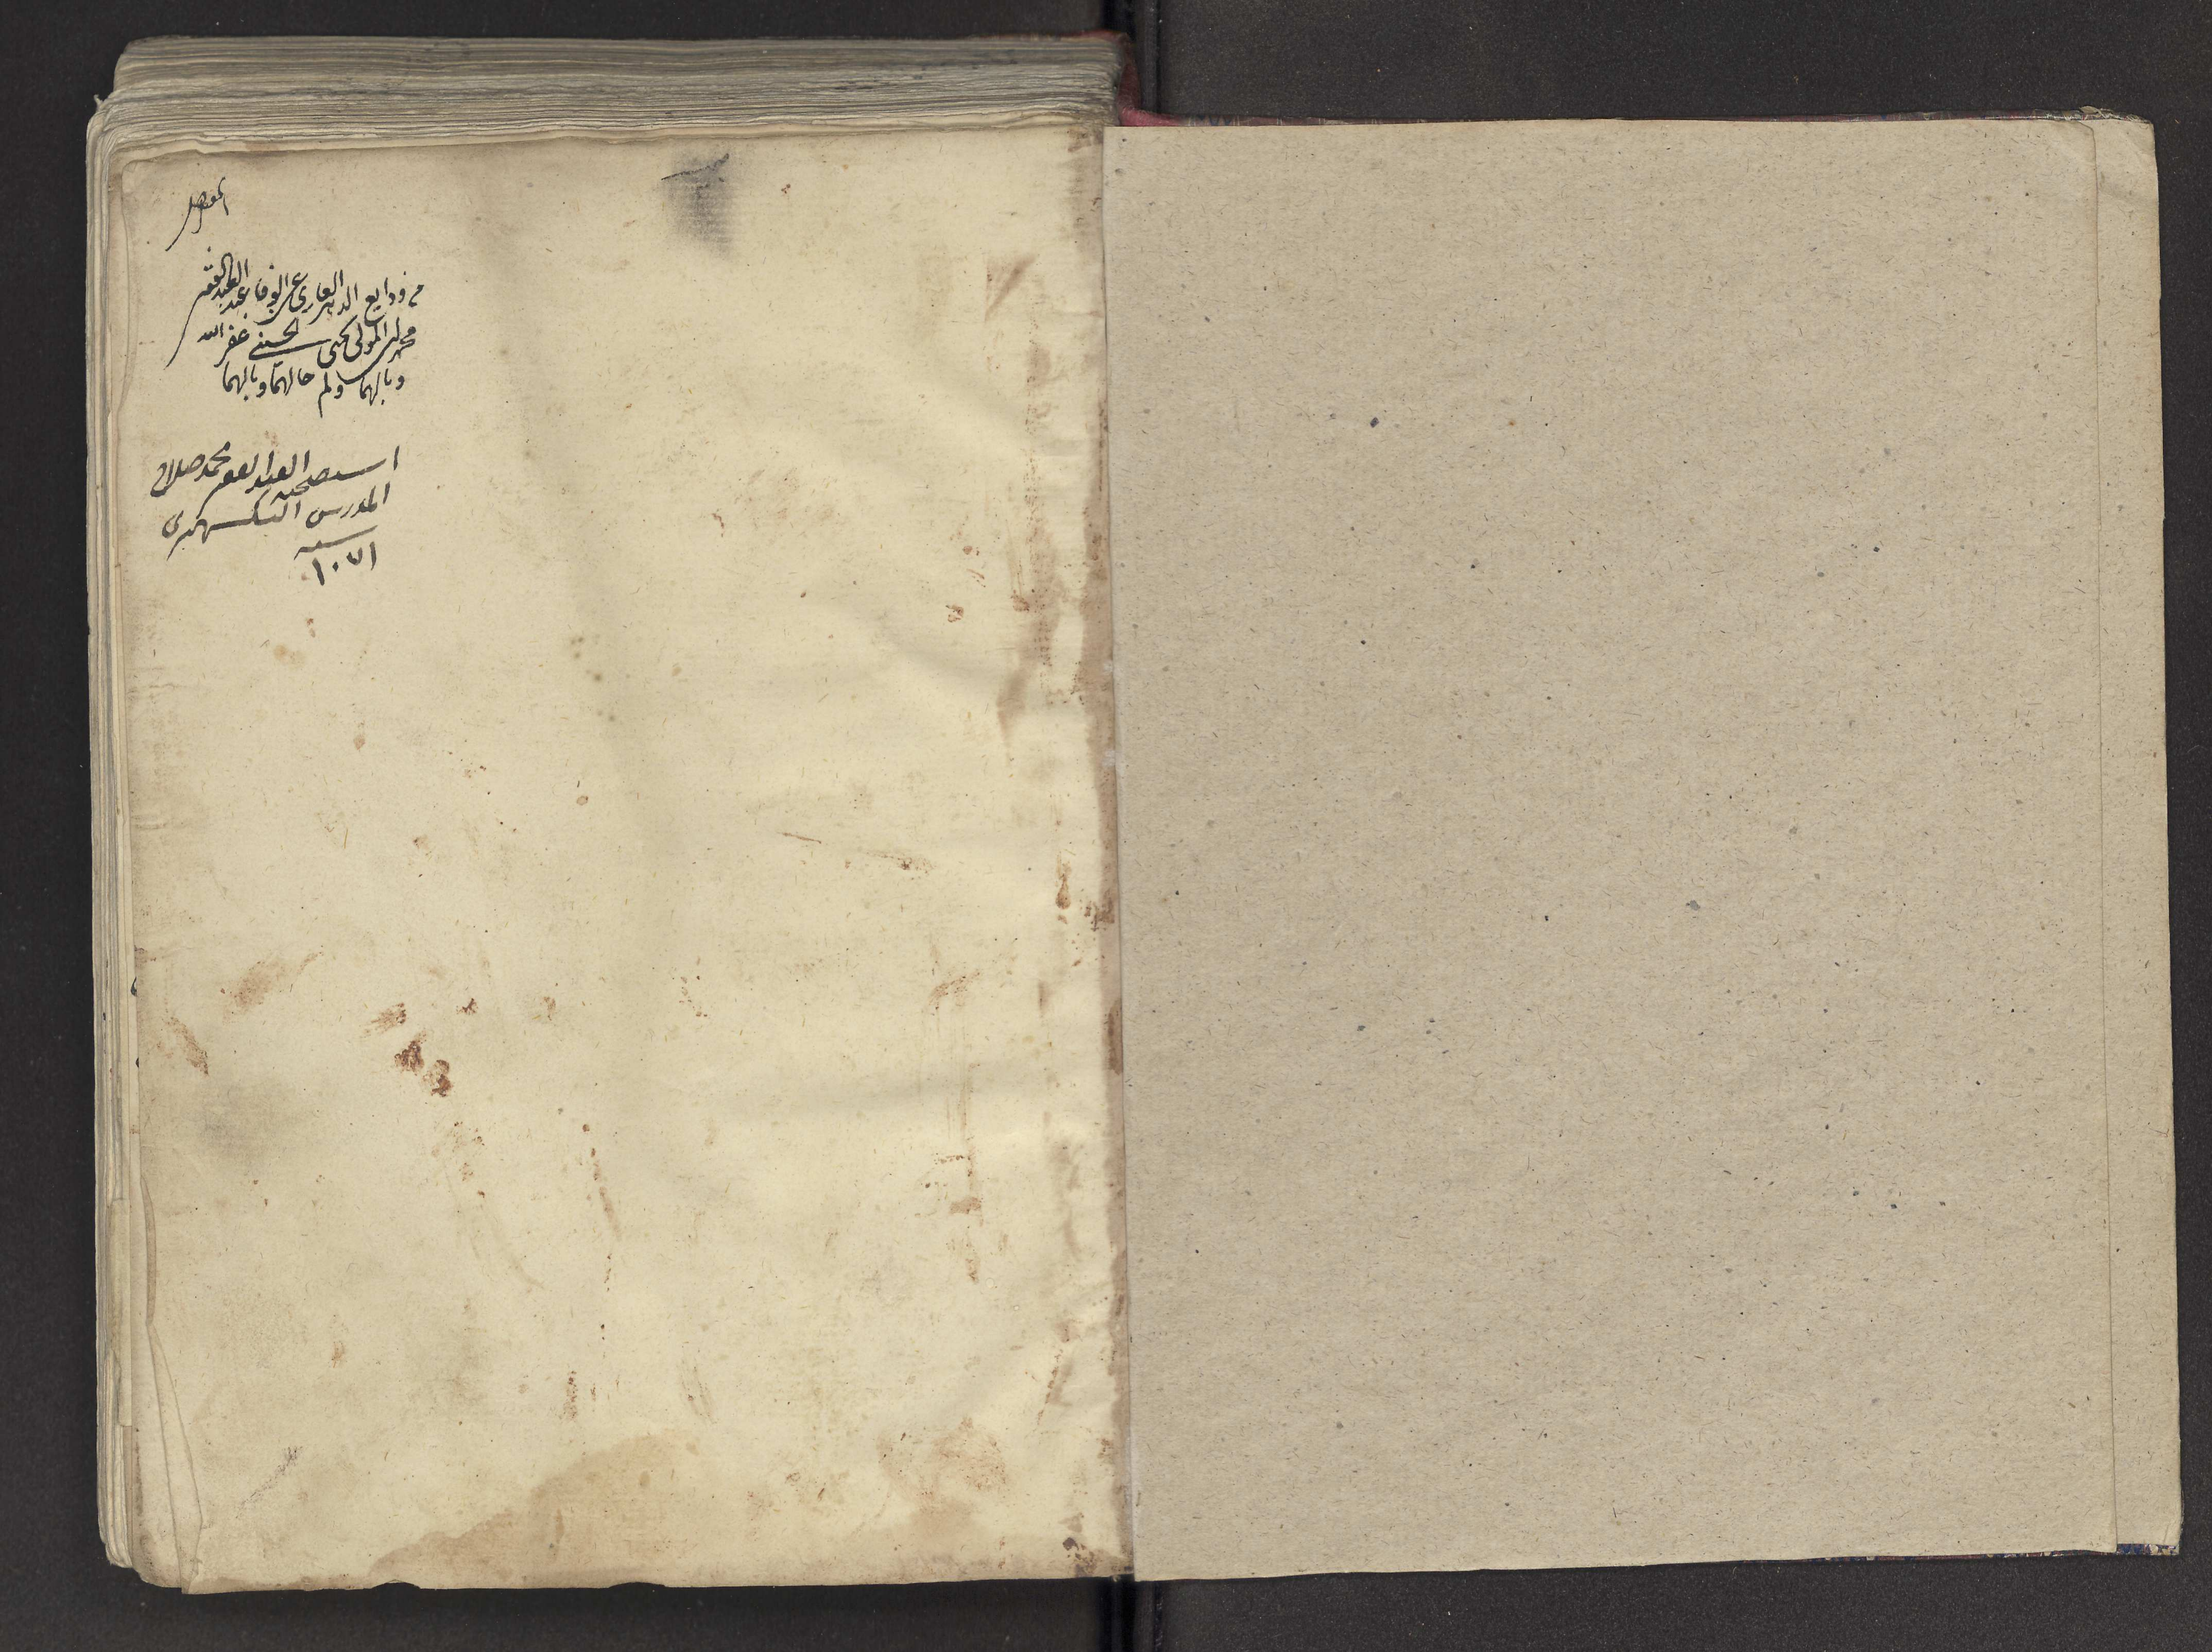 من ودايع الدهر العاري عن الوفا عند العبد الفقير
محمد بن المولى يحيى الحسيني غفر الله
وبالهما ولم حالهما وبالهما
استصحبه العبد الفقير محمد صلاح
المدرس
سنه
١٠٧١